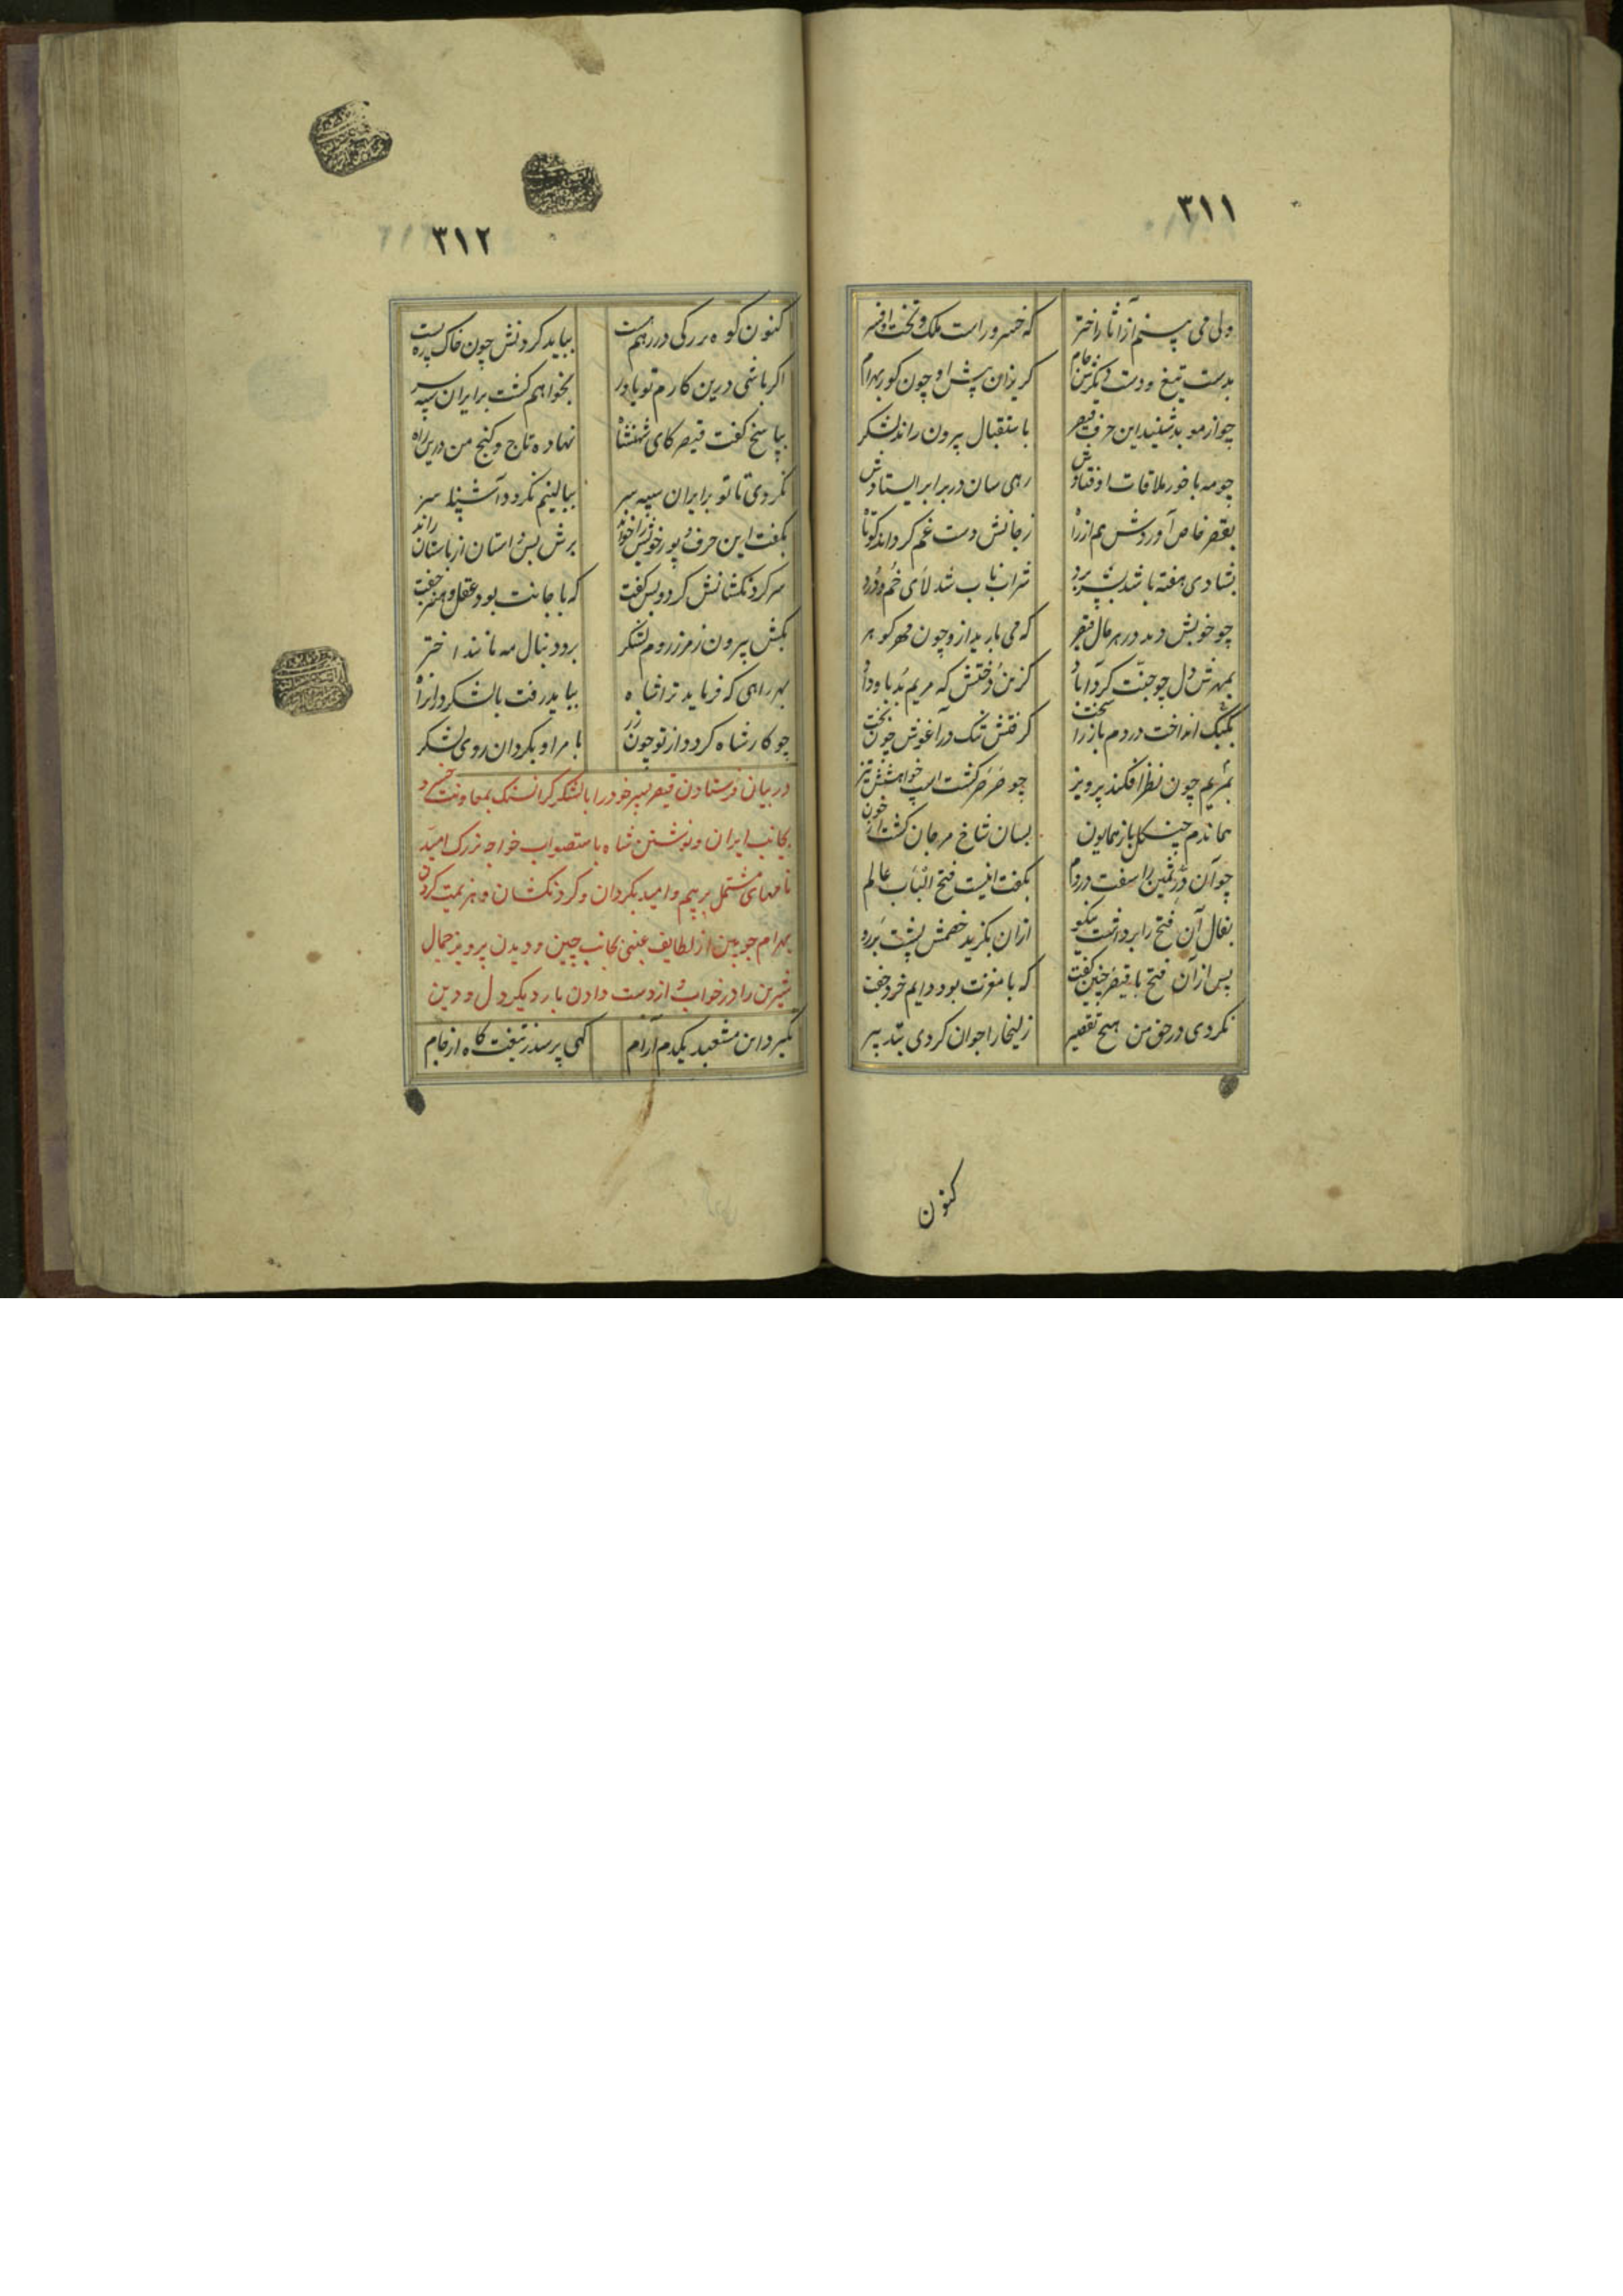 ۳۱۱
ولی می بینم از آثار اختر که خسرو راست ملک و تخت و افسر
بدست تیغ و دست دیگرش جام گریزان پیش او چون گور بهرام
چو از موبد شنید این حرف قیصر باستقبال بیرون راند لشکر
چو مه با خور ملاقات اوفتادش رهی سان در برابر ایستادش
بقصر خاص آوردش هم از راه ز جانش دست غم کرداند کوتاه
بشادی هفته با شه بسر برد شراب ناب شد لای خم و درد
چو خویش دید در هر حال قیصر که می بارید ازو چون مهر گوهر
بمهرش دل چو جنت کرد آباد گزین دختش که مریم بد باو داد
بکبک انداخت در دم باز را سخت گرفتش تنک در آغوش چون بخت
بمریم چون نظر افکند پرویز چو صرصر گشت اسب خواهشش تیز
هماندم چنگل باز همایون بسان شاخ مرجان گشت از خون
چو آن در ثمین را سفت در دم بگفت اینست فتح الباب عالم
بفال آن فتح را برداشت نیکو ازان بگزید خصمش پشت بر رو
پس از آن فتح با قیصر چنین گفت که با مغزت بود دایم خرد جفت
نکردی در حق من هیچ تقصیر زلیخا را جوان کردی بتدبیر
کنون
۳۱۲
کنون کوه بزرگی در رهم هست بباید کردنش چون خاک ره پست
اگر باشی درین کارم تو یاور بخواهم گشت بر ایران سپه سر
بپاسخ گفت قیصر کای شهنشاه نهاده تاج و گنج من درین راه
نگردی تا تو بر ایران سپه سر ببالینم نگردد آشنا سر
بگفت این حرف و پور خویش را خواند برش بس داستان از باستان راند
سر گردنکشانش کرد و پس گفت که با جانت بود عقل و هنر جفت
بکش بیرون ز مرز روم لشکر برو دنبال مه مانند اختر
بهر راهی که فرماید ترا شاه بباید رفت با لشکر در آن راه
چو کار شاه گردد از تو چون زر بامر او بگردان روی لشکر
در بیان فرستادن قیصر پسر خود را با لشکر گرانسنک بمعاونت خسرو
بجانب ایران و نوشتن شاه باستصواب خواجه بزرک امید
نامهای مشتمل بر بیم و امید بکردان و کردنکشان و هزیمت کردن
بهرام چوبین از لطایف غیبی بجانب چین و دیدن پرویز جمال
شیرین را در خواب و از دست دادن بار دیکر دل و دین
نگیرد این مشعبد یکدم آرام گهی پرسد ز تیغت گاه از جام